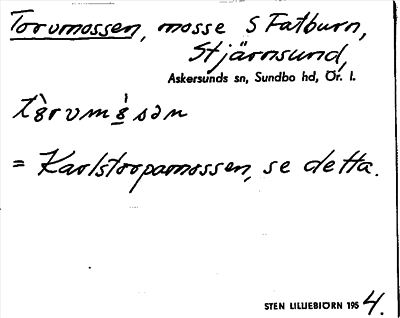 Torvmossen, mosse S Fatburn,
Stjärnsund,
Askersunds sn, Sundbo hd, Ör. l.
= Karlstorpamossen, se detta.
STEN LILLIEBIÖRN 1954.